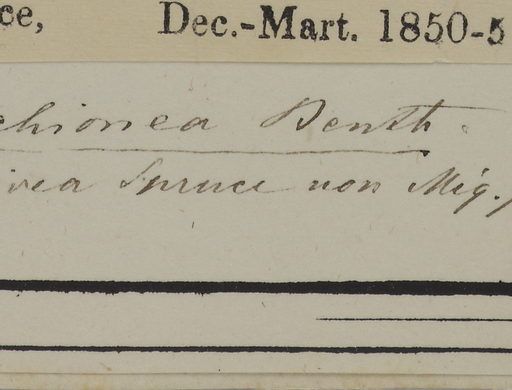 ce, Dec.-Mart. 1850-5
chionea Benth.
ivea Spruce non Miq.